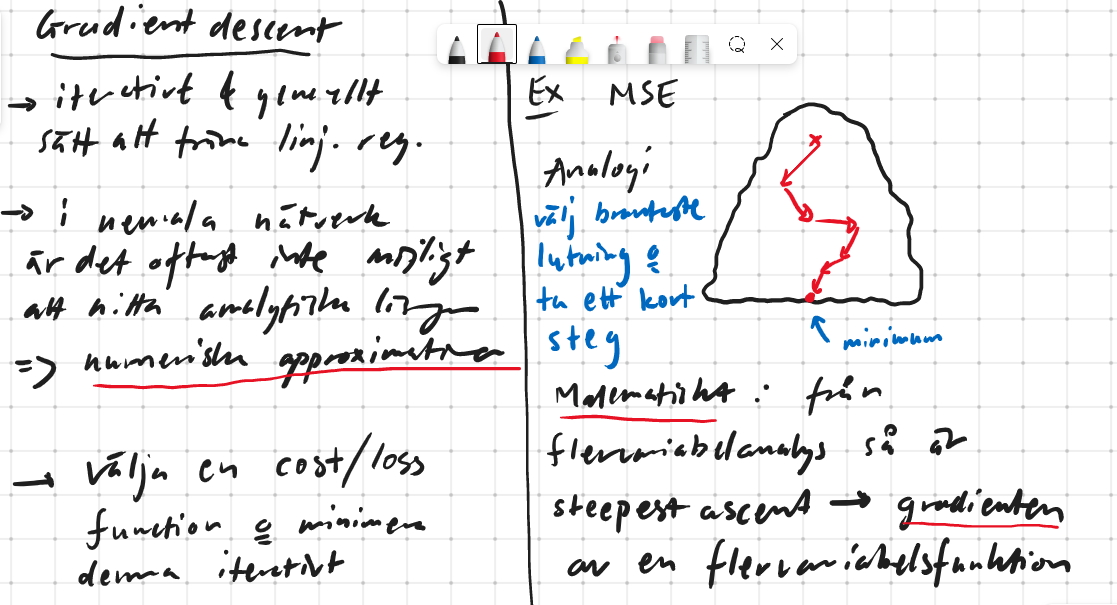 Gradient descent
→ iterativt & generellt
sätt att träna linj. reg.
→ i neurala nätverk
är det oftast inte möjligt
att hitta analytiska lösningar
=> numeriska approximationer
→ välja en cost/loss
function o minimera
denna iterativt
Ex MSE
Analogi
välj brantaste
lutning o
ta ett kort
steg
minimum
Matematiskt: från
flervariabelanalys så är
steepest ascent → gradienten
av en flervariabelsfunktion